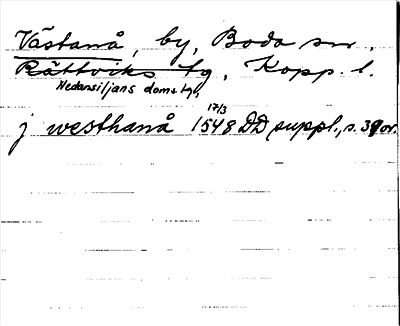 Västanå, by, Boda sn.
Rättviks tg, Kopp. l.
Nedansiljans doms tg,
17/3
j westhanå 1548 DD suppl., s. 39 or.